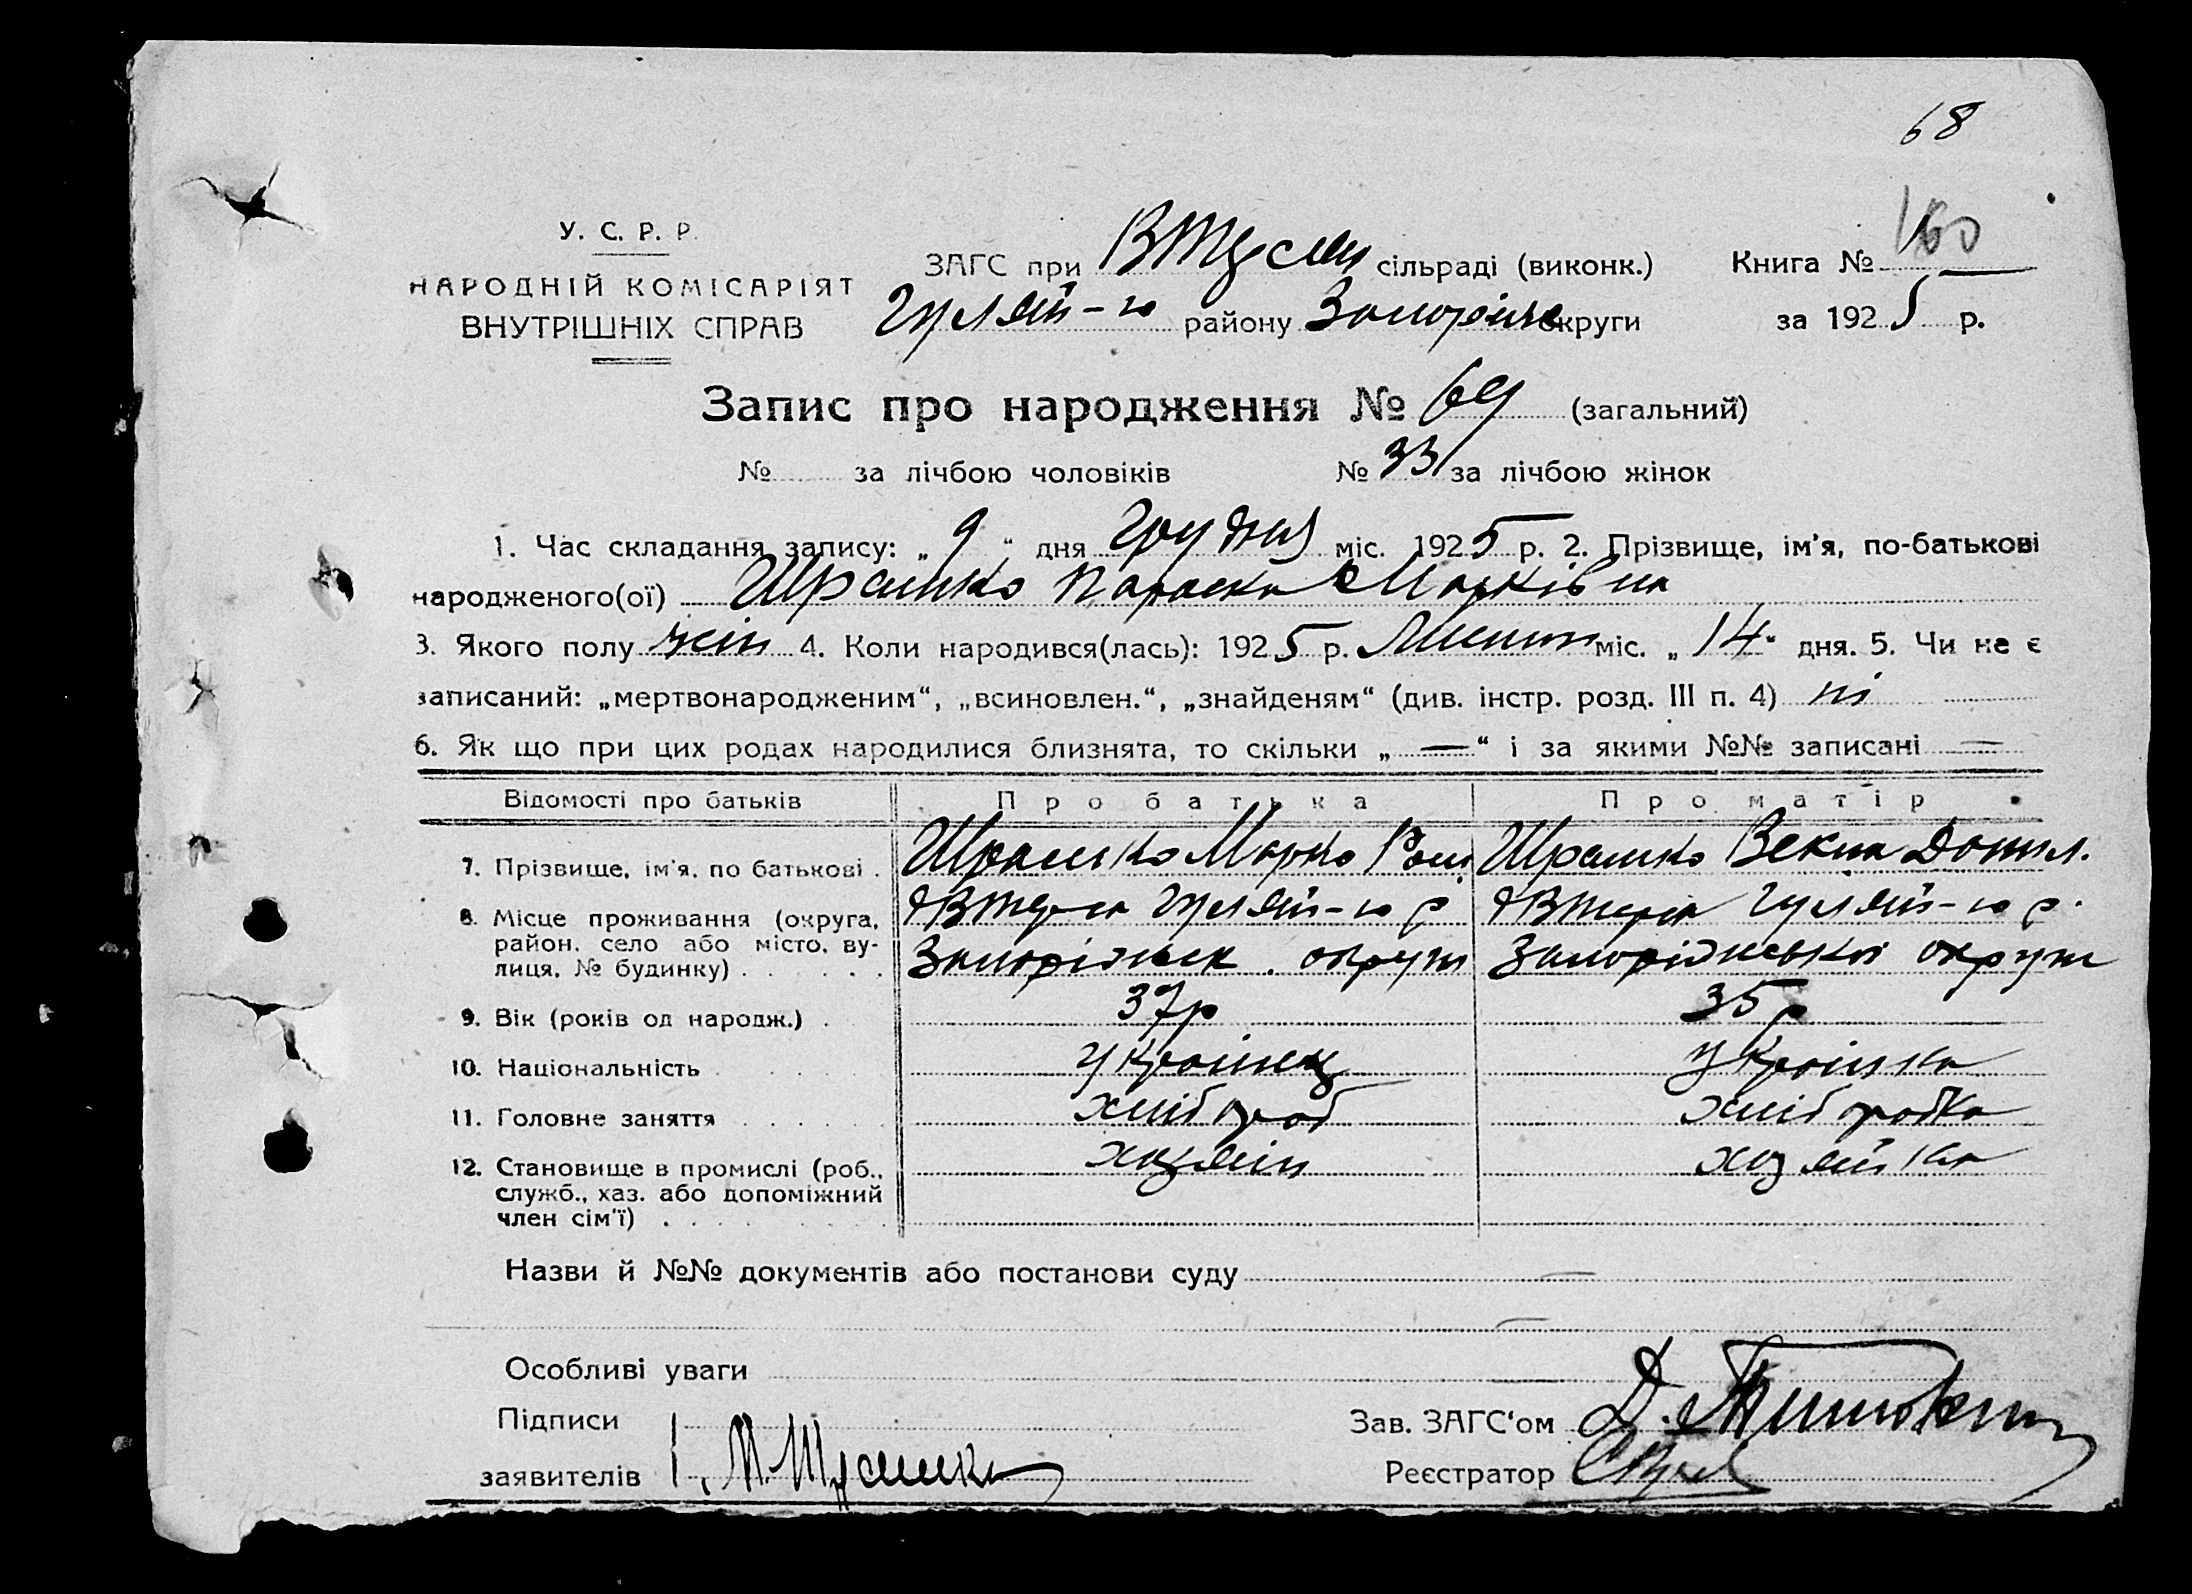 68
У. С. Р. Р.
НАРОДНІЙ КОМІСАРІЯТ
ВНУТРІШНІХ СПРАВ
ЗАГС при сільраді (виконк.) Книга № 160
Гуляй-го району Запоріжс округи за 1925 р.
Запис про народження № 69 (загальний)
№ за лічбою чоловіків № 33 за лічбою жінок
1. Час складання запису: „ 9 “ дня Грудня міс. 1925 р. 2. Прізвище, ім'я, по-батькові
народженого(ої) Шрамко Параска Марківна
3. Якого полу жін 4. Коли народився(лась): 1925 р. міс. „ 14 “ дня. 5. Чи не є
записаний: „мертвонародженим“, „всиновлен.“, „знайденям“ (див. інстр. розд. III п. 4) ні
6. Як що при цих родах народилися близнята, то скільки „ — “ і за якими №№ записані —
Відомості про батьків Про батька Про матір
7. Прізвище, ім'я, по батькові . Шрамко Марко Ром Шрамко Векла Данил.
8. Місце проживання (округа, Гуляй-го р. Гуляй-го р.
район, село або місто, ву-
лиця, № будинку) . . . . . . Запоріжськ. округи Запоріжської округи
9. Вік (років од народж.) . 37р 35р
10. Національність українец українка
11. Головне заняття хлібороб хліборобка
12. Становище в промислі (роб., хазяїн хозяйка
служб., хаз. або допоміжний
член сім'ї) . . . . . . .
Назви й №№ документів або постанови суду —
—
Особливі уваги —
Підписи Зав. ЗАГС'ом Д.
заявителів М. Шрамко Реєстратор